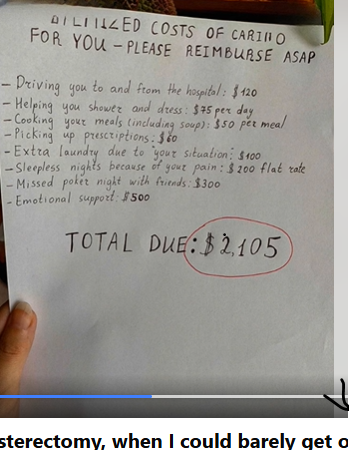 COSTS OF CARING
FOR YOU – PLEASE REIMBURSE ASAP
– Driving you to and from the hospital: $120
– Helping you shower and dress: $75 per day
– Cooking your meals (including soup): $50 per meal
– Picking up prescriptions: $60
– Extra laundry due to "your situation": $100
– Sleepless nights because of your pain: $200 flat rate
– Missed poker night with friends: $300
– Emotional support: $500
TOTAL DUE: $2,105
sterectomy, when I could barely get o